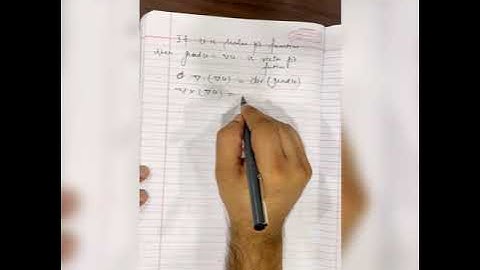 If U is scalar pt function
then gradu = ∇u is vector pt
function
∇·(∇u) = div (gradu)
∇×(∇u) =